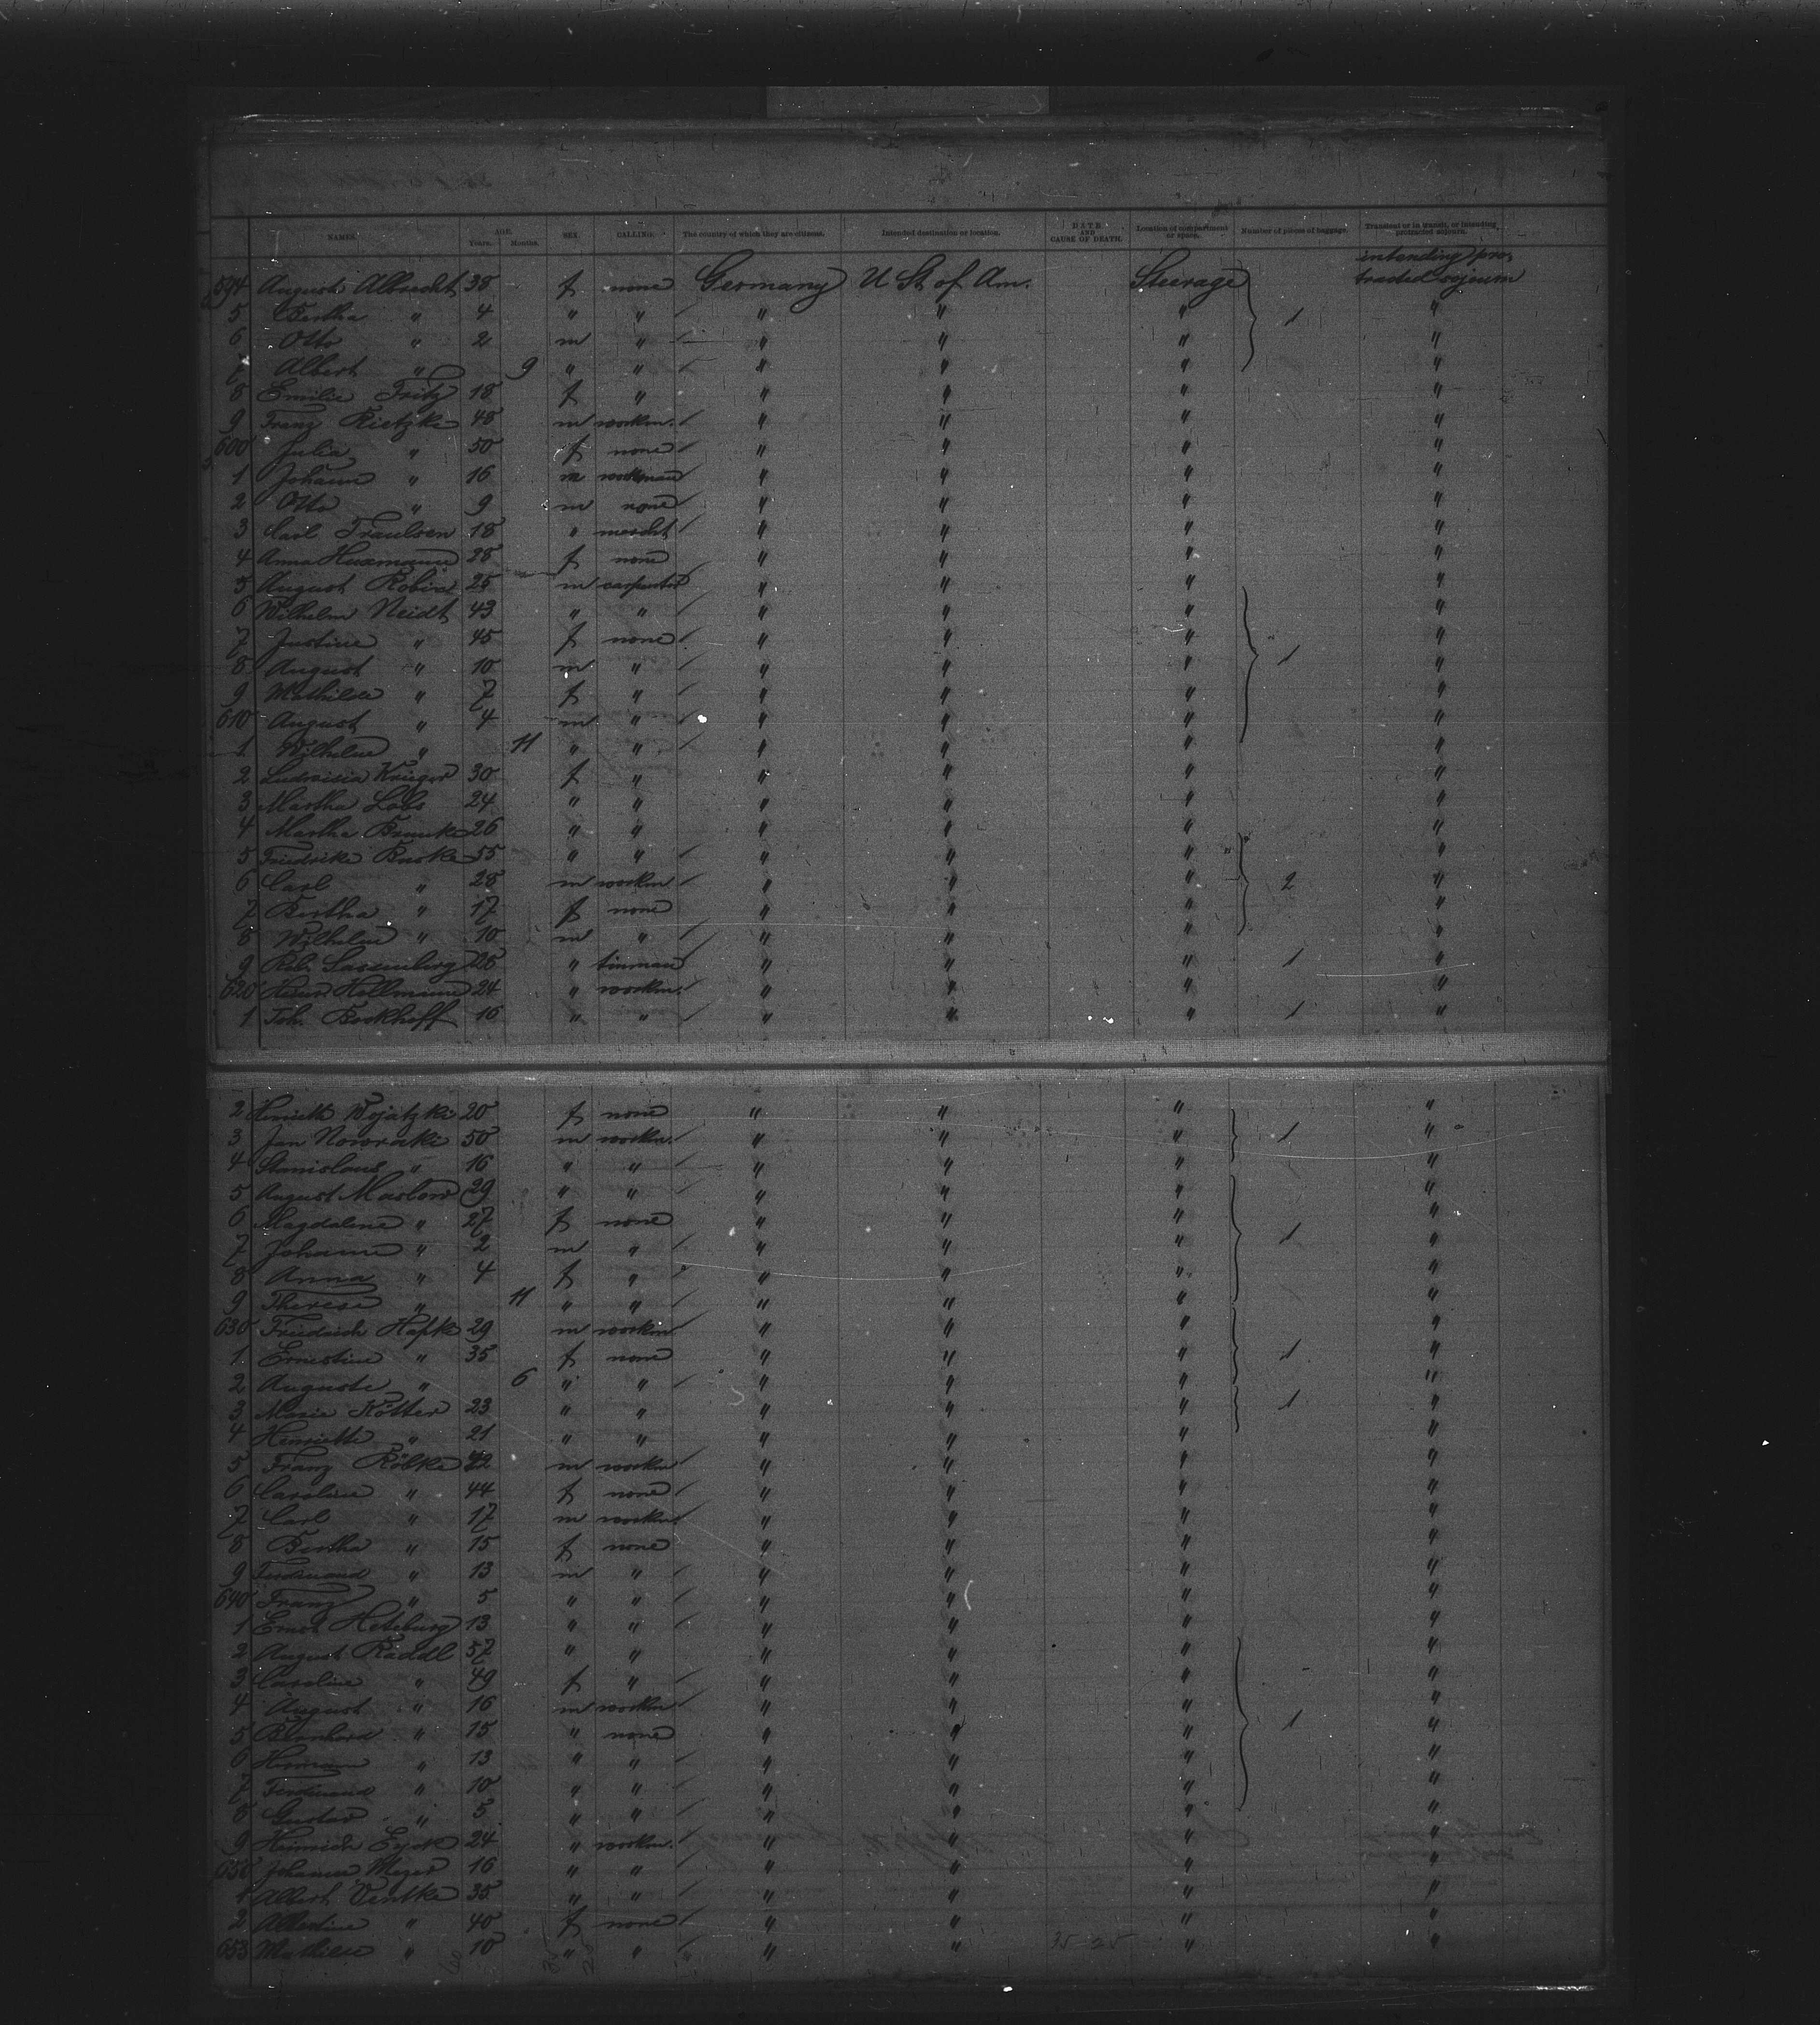 NAMES. AGE. Years. Months. SEX. CALLING. The country of which they are citizens. Intended destination or location. DATE AND CAUSE OF DEATH. Location of compartment or space. Number of pieces of baggage. Transient or in transit, or intending protracted sojourn.
594 Auguste Albrecht 38 f none Germany U St of Am. Steerage intending protracted sojourn
5 Bertha " 4 " " " " " 1 "
6 Otto " 2 m " " " " "
7 Albert " 9 " " " " " "
8 Emilie Fritz 18 f " " " " "
9 Franz Rietzke 48 m workm. " " " "
600 Julia " 50 f none " " " "
1 Johann " 16 m workman " " " "
2 Otto " 9 m none " " " "
3 Carl Traulsen 18 " mercht " " " "
4 Anna Huxmann 28 f none " " " "
5 August 25 m carpenter " " " "
6 Wilhelm Neidt 43 " " " " " "
7 Justine " 45 f none " " " "
8 August " 10 m " " " " 1 "
9 Mathilde " 7 f " " " " "
610 August " 4 m " " " " "
1 Wilhelm " 11 " " " " " "
2 Krieger 30 f " " " " "
3 Martha 24 " " " " " "
4 Martha 26 " " " " " "
5 Friedrike 55 " " " " " "
6 Carl " 28 m workm " " " 2 "
7 Bertha " 17 f none " " " "
8 Wilhelm " 10 m " " " " "
9 Rob. 25 " tinman " " " 1 "
620 Hollmann 24 " workm. " " " "
1 Joh. Bockhoff 16 " " " " " 1 "
2 Henriette Wojatzki 20 f none " " " "
3 Jan Noworacki 50 m workm. " " " 1 "
4 Stanislaus " 16 " " " " " "
5 August Maslow 29 " " " " " "
6 Magdalene " 27 f none " " " "
7 Johann " 2 m " " " " 1 "
8 Anna " 4 f " " " " "
9 Therese " 11 " " " " " "
630 Friedrich Hapke 29 m workm " " " "
1 Ernestine " 35 f none " " " 1 "
2 Auguste " 6 " " " " " "
3 Marie Kötter 23 " " " " " 1 "
4 Henriette " 21 " " " " " "
5 Franz Röbke 42 m workm " " " "
6 Caroline " 44 f none " " " "
7 Carl " 17 m workm " " " "
8 Bertha " 15 f none " " " "
9 Ferdinand " 13 m " " " " "
640 Franz " 5 " " " " " "
1 Ernst Heteburg 13 " " " " " "
2 August Raddl 57 " " " " " "
3 Caroline " 49 f " " " " "
4 August " 16 m workm " " " "
5 Bernhard " 15 " none " " " 1 "
6 Hermann " 13 " " " " " "
7 Ferdinand " 10 " " " " " "
8 Gustav " 5 " " " " " "
9 Heinrich Eyck 24 " workm. " " " "
650 Johann Meyer 16 " " " " " "
1 Albert Ventke 35 " " " " " "
2 Albertine " 40 f none " " " "
653 " 10 " " " " " "